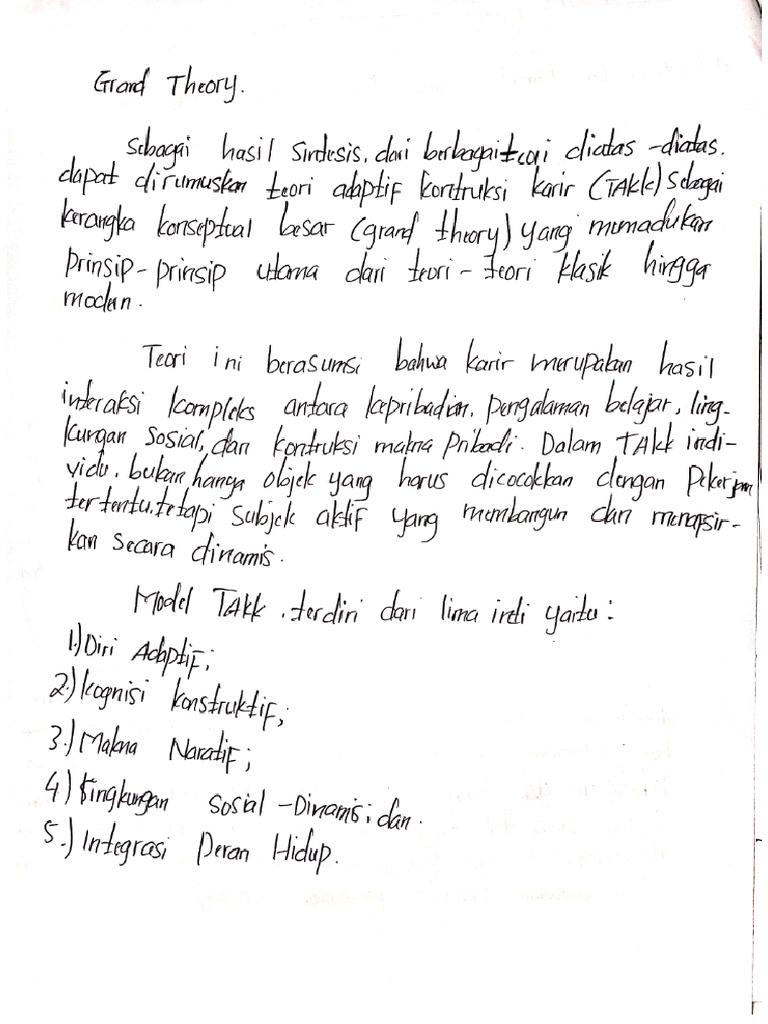 Grand Theory.
Sebagai hasil sintesis, dari berbagai teori diatas -diatas.
dapat dirumuskan teori adaptif kontruksi karir (TAKK) sebagai
kerangka konseptual besar (grand theory) yang memadukan
prinsip-prinsip utama dari teori-teori klasik hingga
modern.
Teori ini berasumsi bahwa karir merupakan hasil
interaksi kompleks antara kepribadian, pengalaman belajar, ling-
kungan sosial, dan kontruksi makna pribadi. Dalam TAKK indi-
vidu, bukan hanya objek yang harus dicocokkan dengan pekerjaan
tertentu, tetapi subjek aktif yang membangun dan menapsir-
kan secara dinamis.
Model TAKK, terdiri dari lima inti yaitu:
1.) Diri Adaptif;
2.) Kognisi konstruktif;
3.) Makna Naratif;
4.) Lingkungan sosial -Dinamis; dan.
5.) Integrasi Peran Hidup.